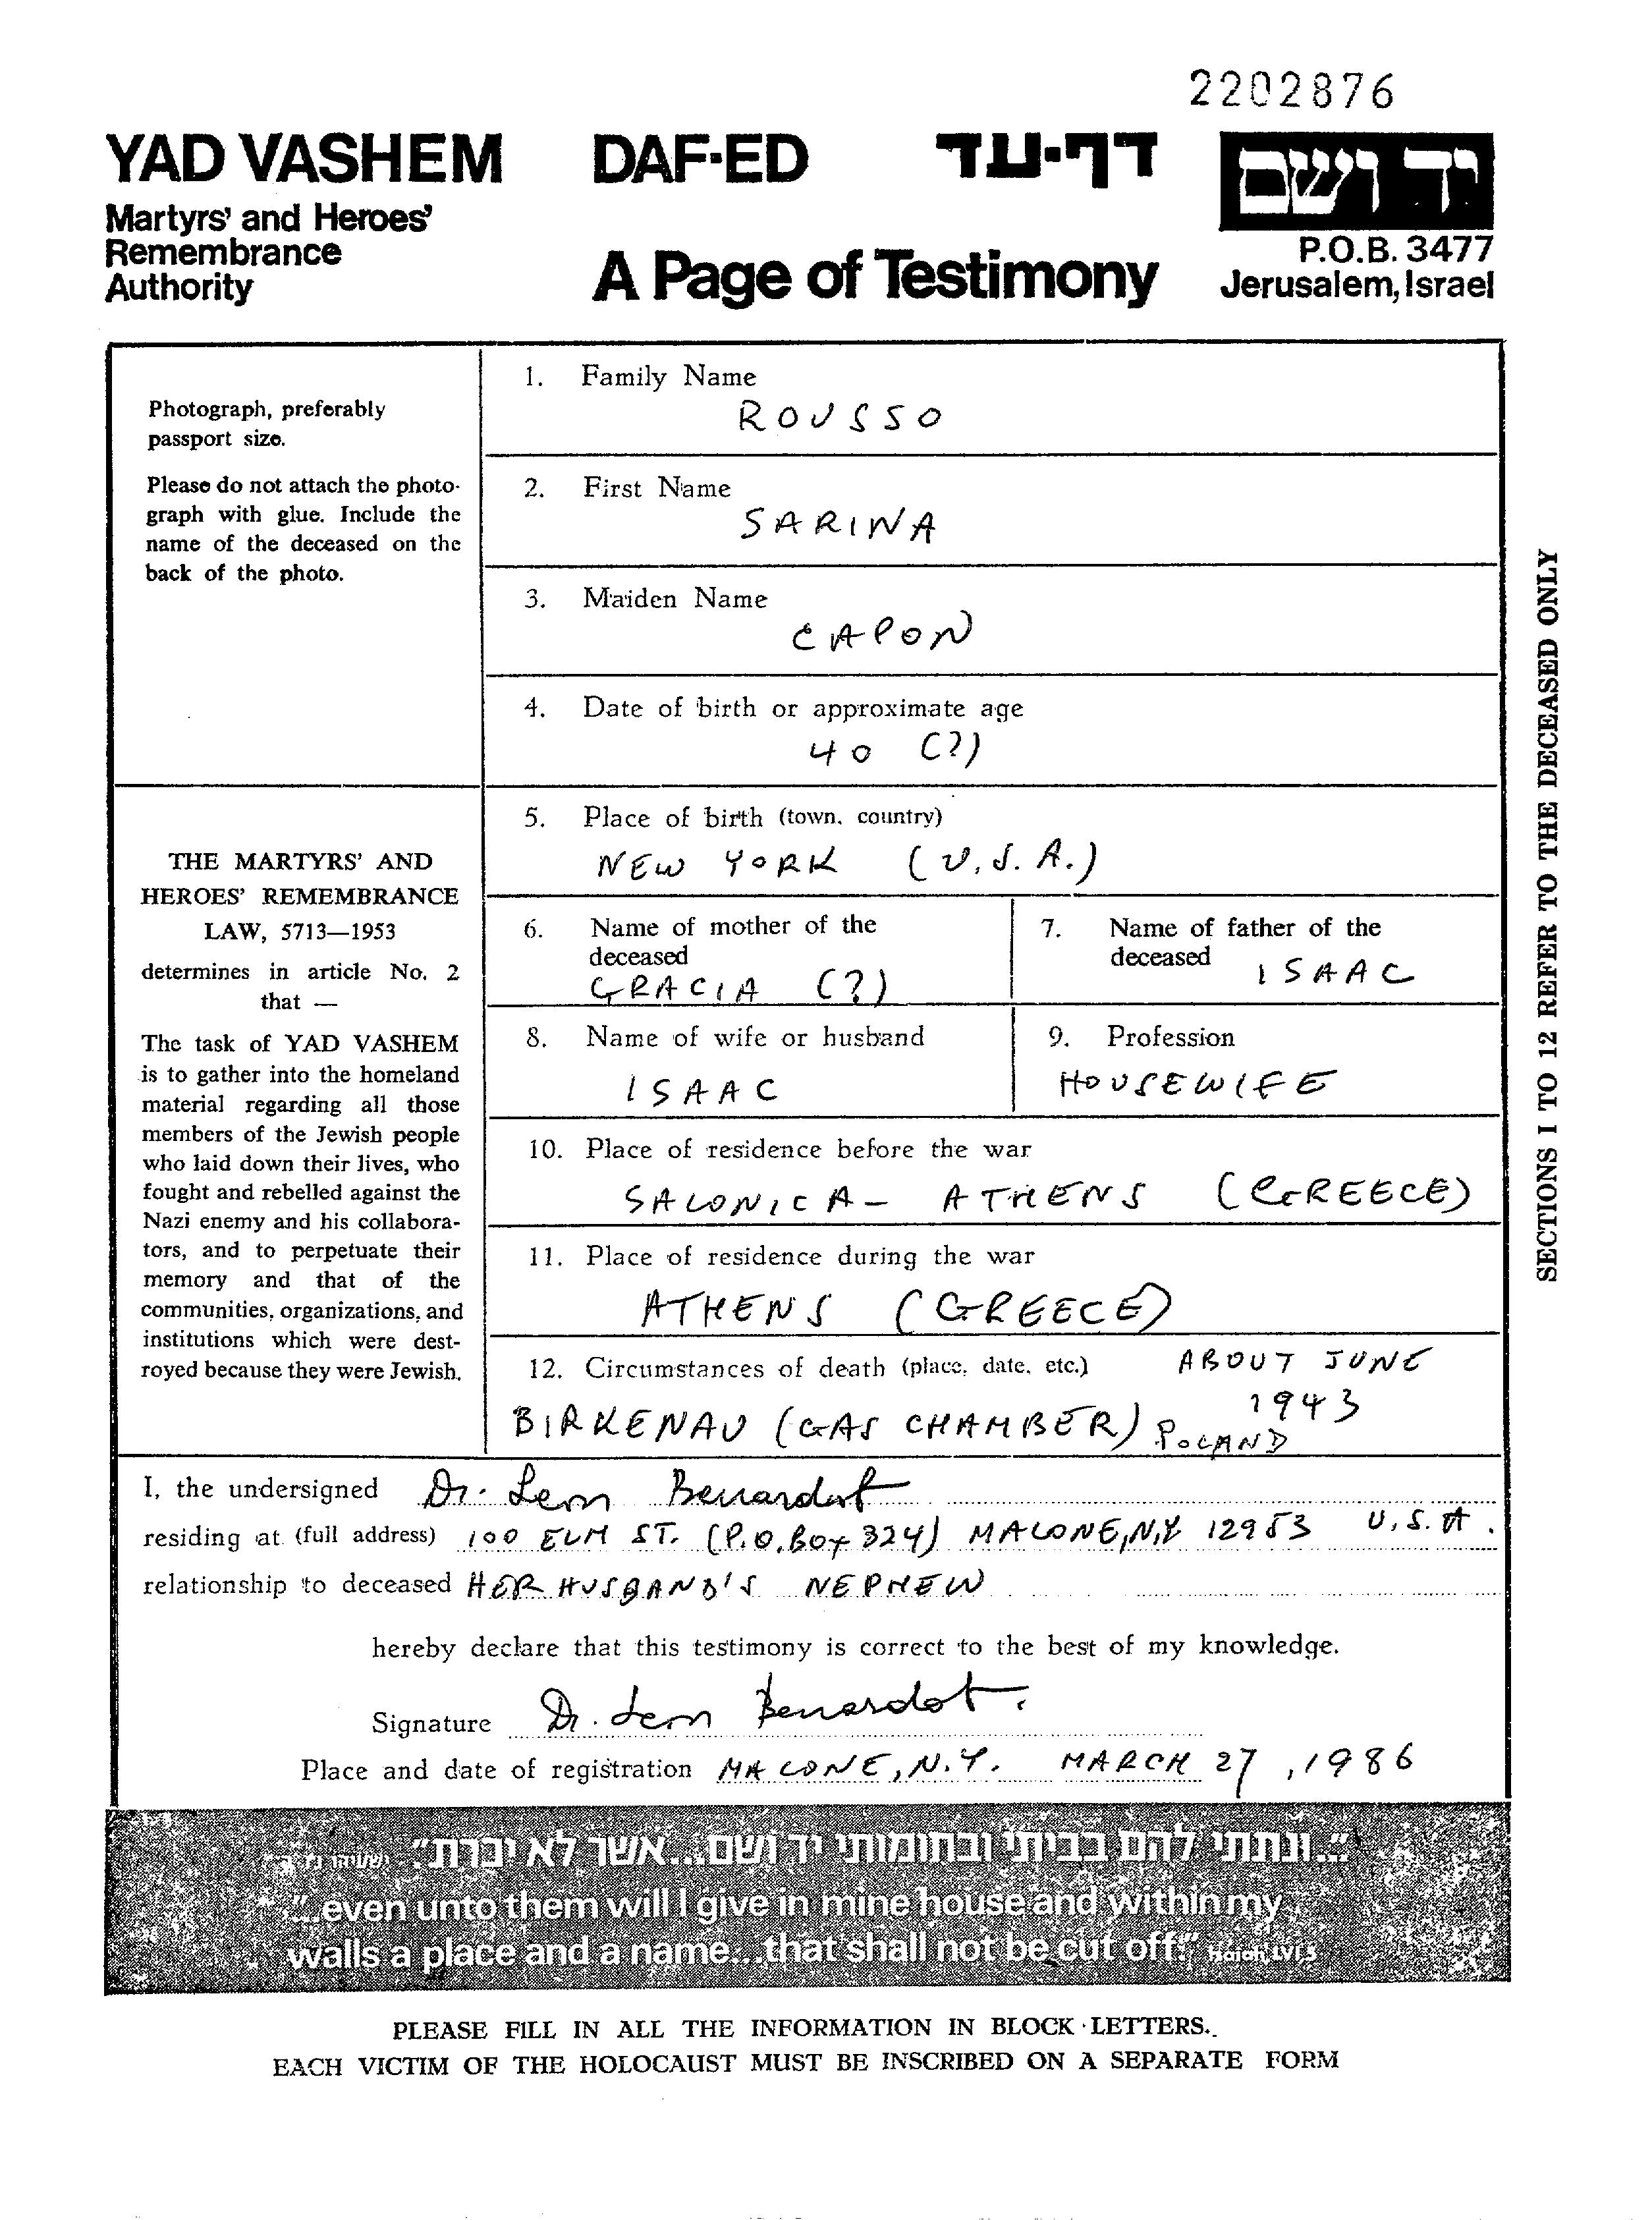 2202876
YAD VASHEM DAF-ED דף-עד יד ושם
Martyrs' and Heroes'
Remembrance
Authority
A Page of Testimony
P.O.B. 3477
Jerusalem, Israel
Photograph, preferably
passport size.
Please do not attach the photo-
graph with glue. Include the
name of the deceased on the
back of the photo.
THE MARTYRS' AND
HEROES' REMEMBRANCE
LAW, 5713—1953
determines in article No. 2
that —
The task of YAD VASHEM
is to gather into the homeland
material regarding all those
members of the Jewish people
who laid down their lives, who
fought and rebelled against the
Nazi enemy and his collabora-
tors, and to perpetuate their
memory and that of the
communities, organizations, and
institutions which were dest-
royed because they were Jewish.
1. Family Name
ROUSSO
2. First Name
SARINA
3. Maiden Name
CAPON
4. Date of birth or approximate age
40 (?)
5. Place of birth (town, country)
NEW YORK (U.S.A.)
6. Name of mother of the
deceased
GRACIA (?)
7. Name of father of the
deceased ISAAC
8. Name of wife or husband
ISAAC
9. Profession
HOUSEWIFE
10. Place of residence before the war
SALONICA – ATHENS (GREECE)
11. Place of residence during the war
ATHENS (GREECE)
12. Circumstances of death (place, date, etc.) ABOUT JUNE
1943
BIRKENAU (GAS CHAMBER) POLAND
SECTIONS I TO 12 REFER TO THE DECEASED ONLY
I, the undersigned Dr. Leon Benardot
residing at (full address) 100 ELM ST. (P.O. Box 324) MALONE, N.Y 12953 U.S.A.
relationship to deceased HER HUSBAND'S NEPHEW
hereby declare that this testimony is correct to the best of my knowledge.
Signature Dr. Leon Benardot.
Place and date of registration MALONE, N.Y. MARCH 27, 1986
"...ונתתי להם בביתי ובחומותי יד ושם...אשר לא יכרת".
"...even unto them will I give in mine house and within my
walls a place and a name...that shall not be cut off." Isaiah LVI 5
PLEASE FILL IN ALL THE INFORMATION IN BLOCK LETTERS.
EACH VICTIM OF THE HOLOCAUST MUST BE INSCRIBED ON A SEPARATE FORM